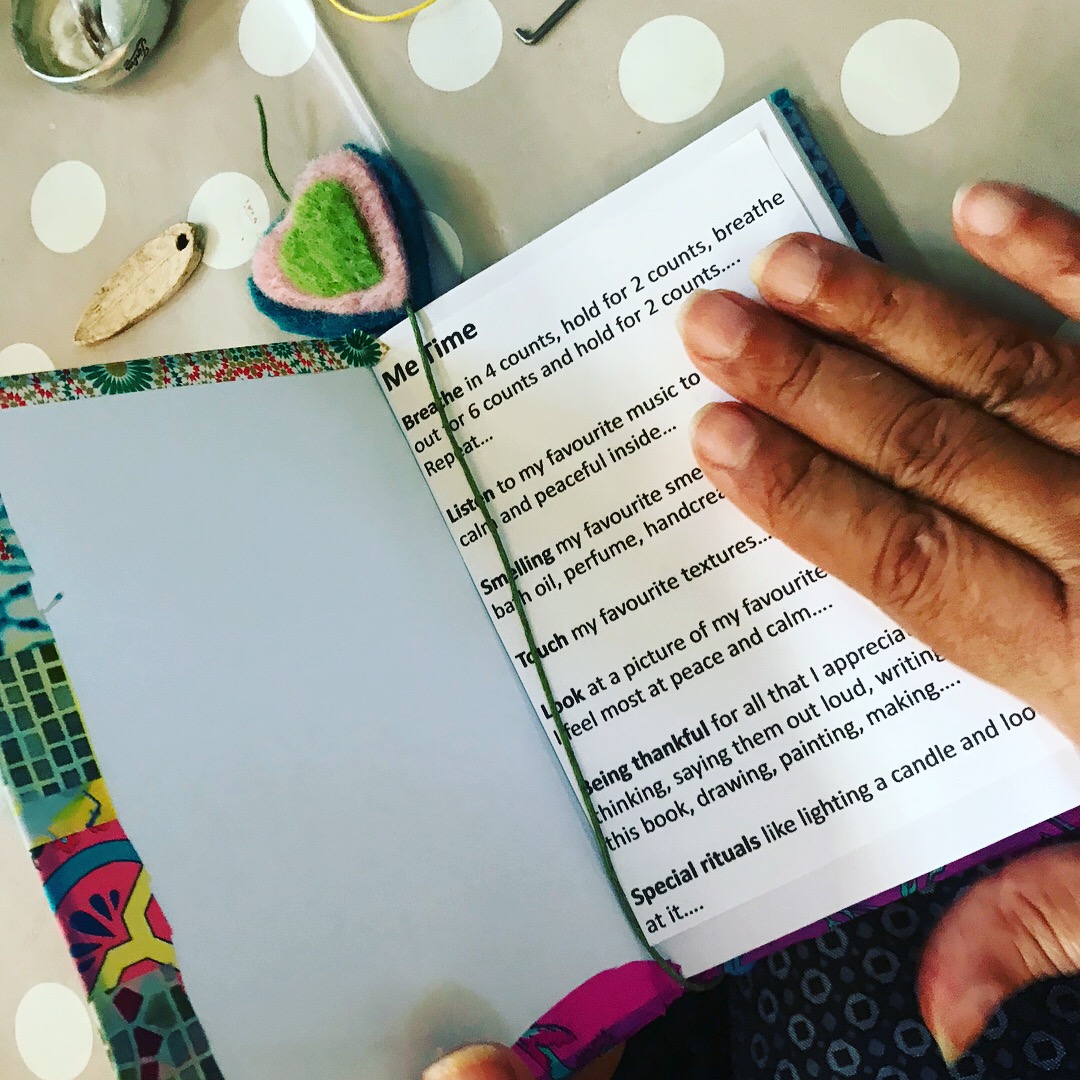 Me Time
Breathe in 4 counts, hold for 2 counts, breathe
out for 6 counts and hold for 2 counts....
Repeat...
Listen to my favourite music to
calm and peaceful inside...
Smelling my favourite
bath oil, perfume,
Touch my favourite textures...
Look at a picture of my favourite
I feel most at peace and calm....
Being thankful for all that I
thinking, saying them out loud, writing
this book, drawing, painting, making....
Special rituals like lighting a candle and
at it....